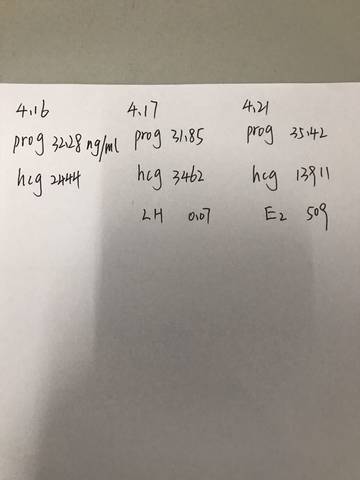 4.16
prog 32.28 ng/ml
hcg 2444
4.17
prog 31.85
hcg 3462
LH 0.07
4.21
prog 35.42
hcg 13911
E2 509